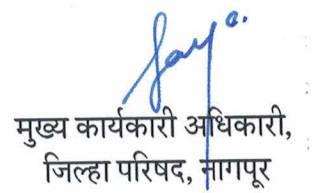 मुख्य कार्यकारी अधिकारी,
जिल्हा परिषद, नागपूर